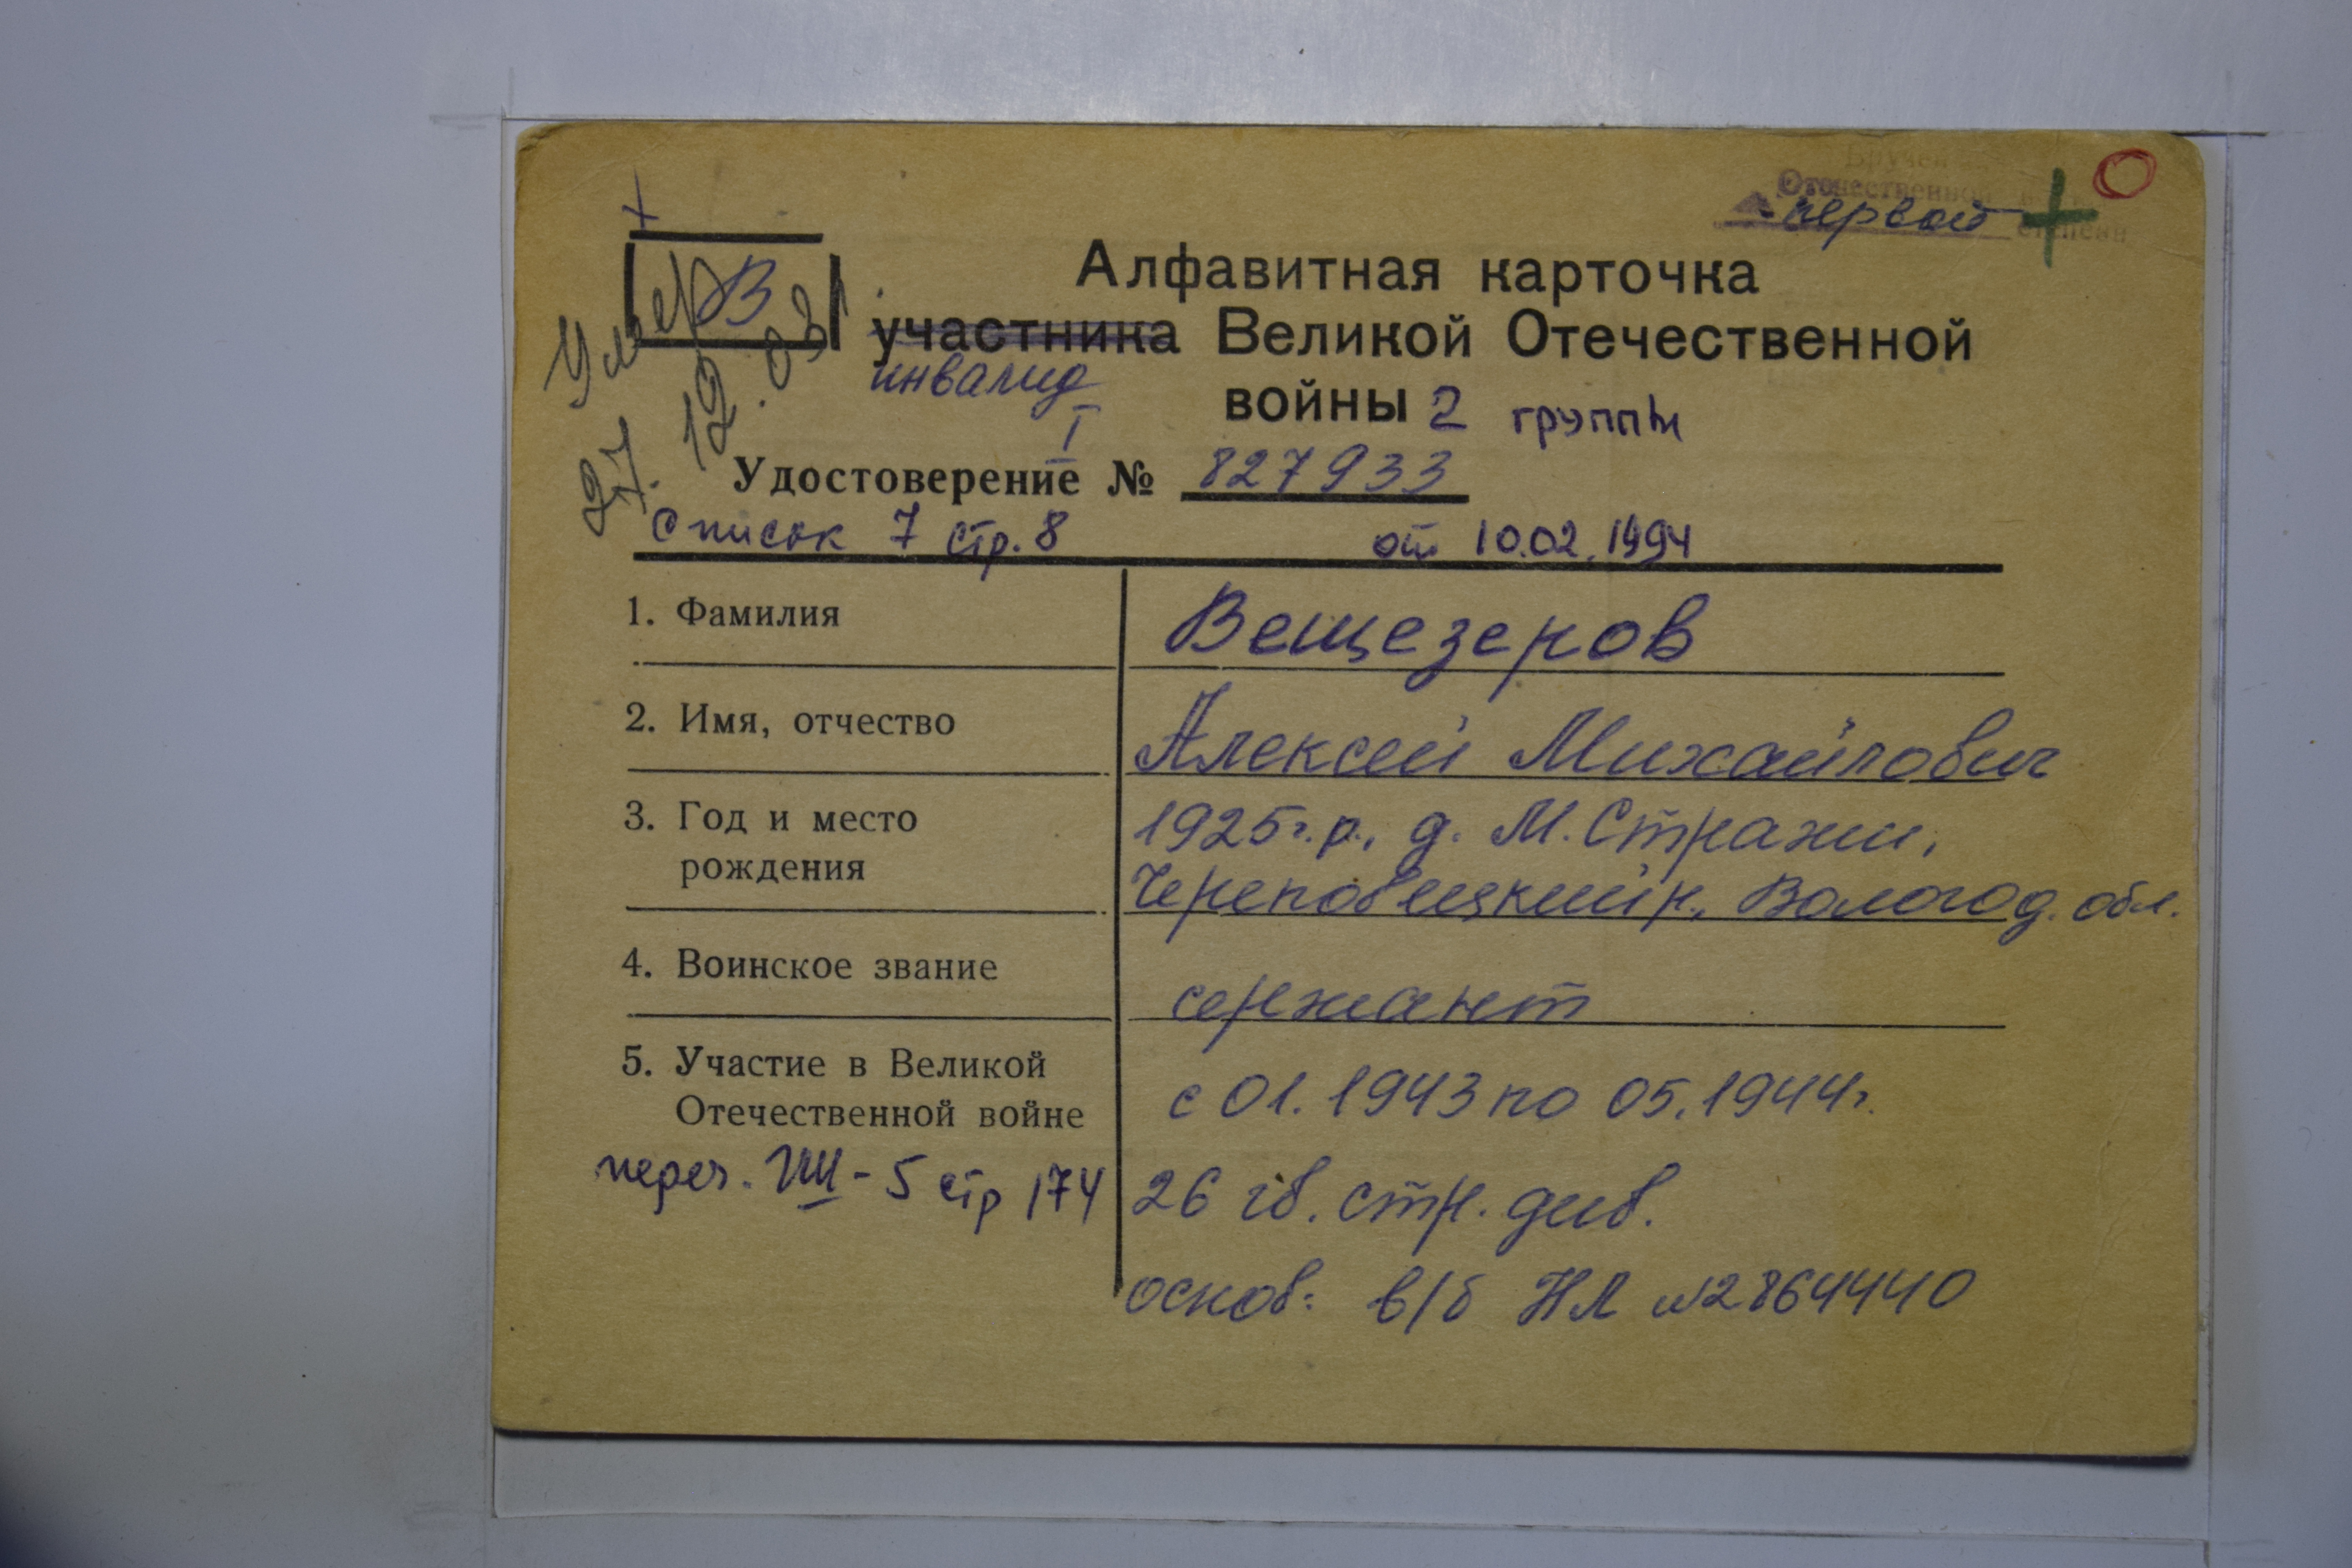 Вручен
Отечественной войны
первой степени
В
Умер
27.12.03
Алфавитная карточка
участника Великой Отечественной
инвалид
войны 2 группы
I
Удостоверение № 827933
Список 7 стр. 8 от 10.02.1994
1. Фамилия Вещезеров
2. Имя, отчество Алексей Михайлович
3. Год и место 1925 г.р., д. М. Стражи,
рождения Череповецкий р., Вологод. обл.
4. Воинское звание сержант
5. Участие в Великой
Отечественной войне с 01.1943 по 05.1944 г.
переч. VIII - 5 стр 174 26 гв. стр. див.
основ: в/б НЛ №2864440